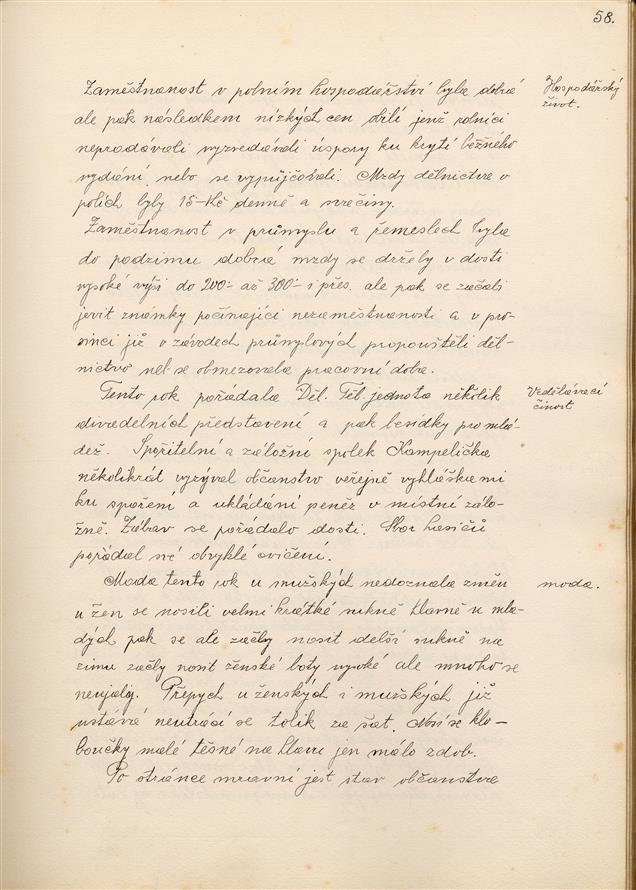 58.
Zaměstnanost v polním hospodářství byla dobrá
Hospodářský
život.
ale pak následkem nízkých cen obilí jenž rolníci
neprodávali vyzvedávali úspory ku krytí běžného
vydání, nebo se vypůjčovali. Mzdy dělnictva v
polích byly 15-Kč denně a svačiny.
Zaměstnanost v průmyslu a řemeslech byla
do podzimu dobrá mzdy se držely v dosti
vysoké výši do 200·- až 300·- i přes. ale pak se začali
jevit známky počínající nezaměstnanosti a v pro-
sinci již v závodech průmylových propouštěli děl-
nictvo neb se obmezovala pracovní doba.
Tento rok pořádala Děl. Těl. jednota několik
Vzdělávací
činost
divadelních představení a pak besídky pro mlá-
dež. Spořitelní a záložní spolek Kampelička
několikrát vyzýval občanstvo veřejně vyhláškami
ku spoření a ukládání peněz v místní zálo-
žně. Zábav se pořádalo dosti. Sbor hasičů
pořádal své obvyklé cvičení.
Moda tento rok u mužských nedoznala změn
moda.
u žen se nosili velmi krátké sukně hlavně u mla-
dých pak se ale začly nosit delší sukně na
zimu začly nosit ženské boty vysoké ale mnoho se
neujaly. Přepych u ženských i mužských již
ustává neutrácí se tolik za šat. Nosí se klo-
boučky malé těsné na hlavu jen málo zdob.
Po stránce mravní jest stav občanstva